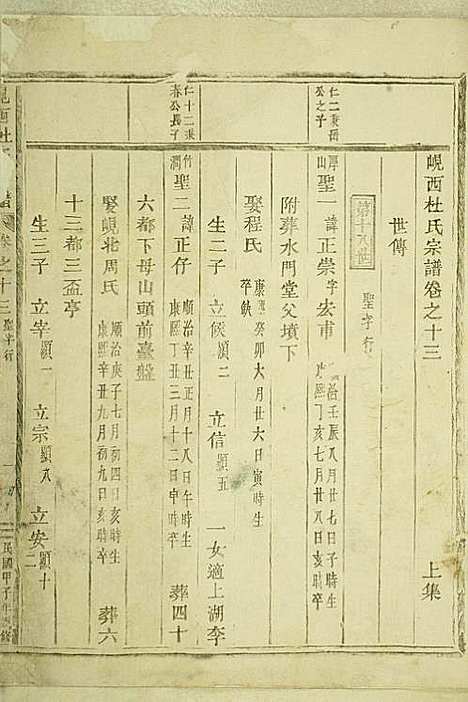 峴西杜氏宗譜卷之十三 上集
世傳
第十八世 聖字行
仁二秉岳公之子
厚山 聖一 諱正崇字宏甫 順治壬辰八月廿七日子時生
康熙丁亥七月廿八日亥時卒
附葬水門堂父墳下
娶程氏 康熙癸卯六月廿六日寅時生
卒缺
生二子 立候顯二 立信顯五 一女適上湖李
仁十二秉春公長子
竹澗 聖二 諱正仔 順治辛丑正月十八日午時生
康熙丁丑三月十二日申時卒 葬四十
六都下母山頭前臺盤
娶峴北周氏 順治庚子七月初四日亥時生
康熙辛丑九月初九日亥時卒 葬六
十三都三盃亭
生三子 立宰顯一 立宗顯八 立安顯十二
峴西杜氏 譜 卷之十三 聖字行 一 民國甲子年 修